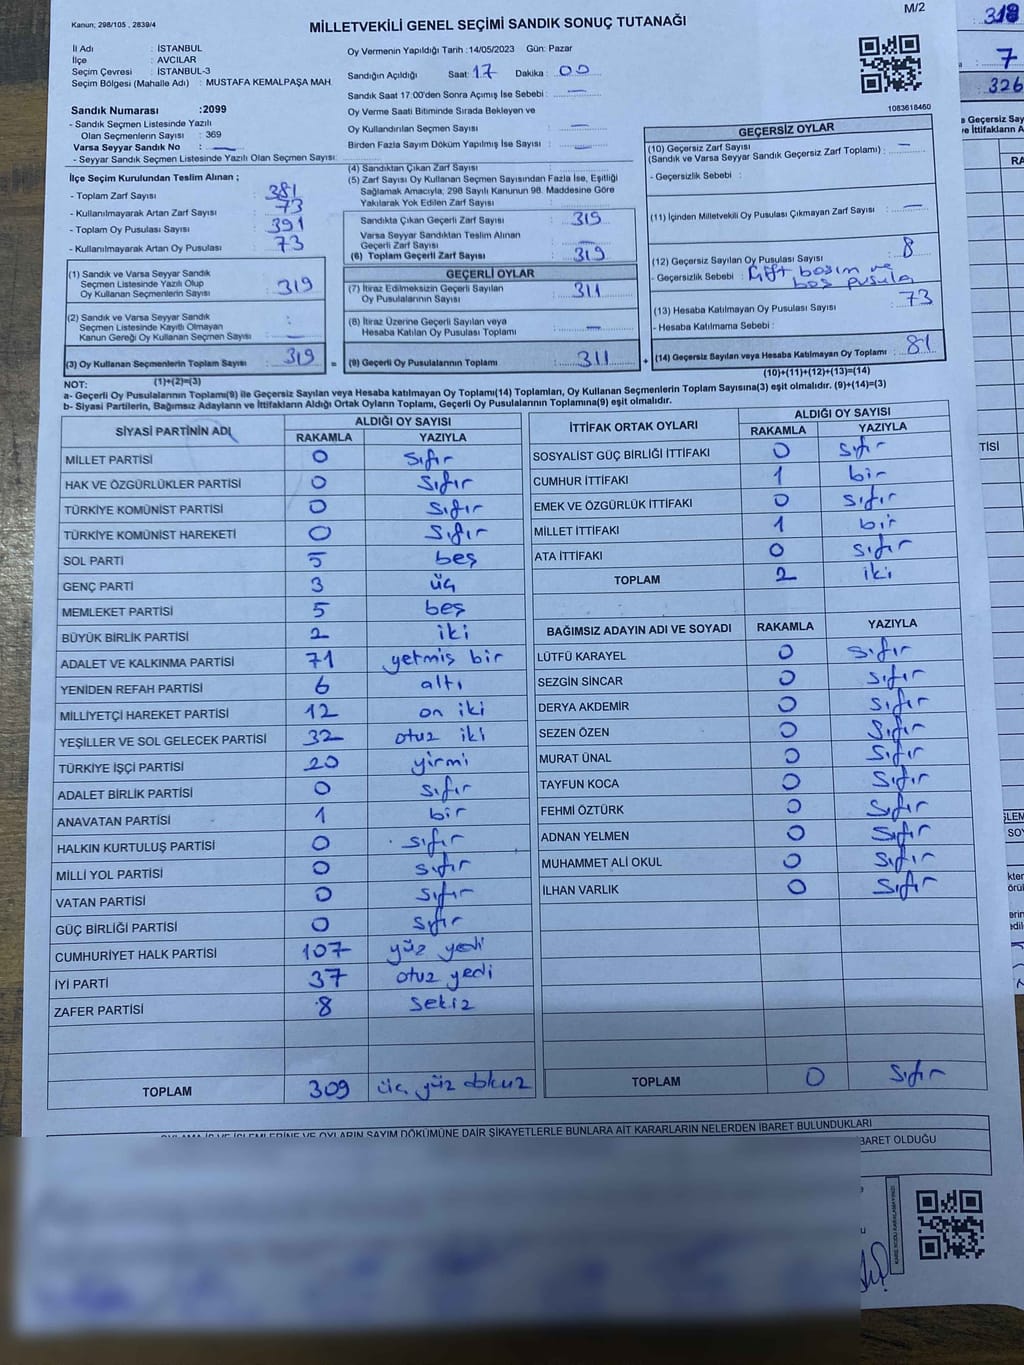 M/2
Kanun: 298/105 , 2839/4
MİLLETVEKİLİ GENEL SEÇİMİ SANDIK SONUÇ TUTANAĞI
İl Adı : İSTANBUL
İlçe : AVCILAR
Seçim Çevresi : İSTANBUL-3
Seçim Bölgesi (Mahalle Adı) : MUSTAFA KEMALPAŞA MAH.
Sandık Numarası :2099
- Sandık Seçmen Listesinde Yazılı
Olan Seçmenlerin Sayısı : 369
Varsa Seyyar Sandık No : —
- Seyyar Sandık Seçmen Listesinde Yazılı Olan Seçmen Sayısı:
İlçe Seçim Kurulundan Teslim Alınan ;
- Toplam Zarf Sayısı : 381
- Kullanılmayarak Artan Zarf Sayısı : 73
- Toplam Oy Pusulası Sayısı : 391
- Kullanılmayarak Artan Oy Pusulası : 73
(1) Sandık ve Varsa Seyyar Sandık
Seçmen Listesinde Yazılı Olup
Oy Kullanan Seçmenlerin Sayısı : 319
(2) Sandık ve Varsa Seyyar Sandık
Seçmen Listesinde Kayıtlı Olmayan
Kanun Gereği Oy Kullanan Seçmen Sayısı : —
(3) Oy Kullanan Seçmenlerin Toplam Sayısı : 319
(1)+(2)=(3)
Oy Vermenin Yapıldığı Tarih :14/05/2023 Gün: Pazar
Sandığın Açıldığı Saat: 17 Dakika : 00
Sandık Saat 17:00'den Sonra Açılmış İse Sebebi : —
Oy Verme Saati Bitiminde Sırada Bekleyen ve
Oy Kullandırılan Seçmen Sayısı : —
Birden Fazla Sayım Döküm Yapılmış İse Sayısı : —
(4) Sandıktan Çıkan Zarf Sayısı :
(5) Zarf Sayısı Oy Kullanan Seçmen Sayısından Fazla İse, Eşitliği
Sağlamak Amacıyla; 298 Sayılı Kanunun 98. Maddesine Göre
Yakılarak Yok Edilen Zarf Sayısı :
Sandıkta Çıkan Geçerli Zarf Sayısı : 319
Varsa Seyyar Sandıktan Teslim Alınan
Geçerli Zarf Sayısı : —
(6) Toplam Geçerli Zarf Sayısı : 319
GEÇERLİ OYLAR
(7) İtiraz Edilmeksizin Geçerli Sayılan
Oy Pusulalarının Sayısı : 311
(8) İtiraz Üzerine Geçerli Sayılan veya
Hesaba Katılan Oy Pusulası Toplamı : —
= (9) Geçerli Oy Pusulalarının Toplamı : 311
1083618460
GEÇERSİZ OYLAR
(10) Geçersiz Zarf Sayısı
(Sandık ve Varsa Seyyar Sandık Geçersiz Zarf Toplamı) : —
- Geçersizlik Sebebi :
(11) İçinden Milletvekili Oy Pusulası Çıkmayan Zarf Sayısı : —
(12) Geçersiz Sayılan Oy Pusulası Sayısı : 8
- Geçersizlik Sebebi : Çift basım ve
boş pusula
(13) Hesaba Katılmayan Oy Pusulası Sayısı : 73
- Hesaba Katılmama Sebebi :
+ (14) Geçersiz Sayılan veya Hesaba Katılmayan Oy Toplamı : 81
(10)+(11)+(12)+(13)=(14)
NOT:
a- Geçerli Oy Pusulalarının Toplamı(9) ile Geçersiz Sayılan veya Hesaba katılmayan Oy Toplamı(14) Toplamları, Oy Kullanan Seçmenlerin Toplam Sayısına(3) eşit olmalıdır. (9)+(14)=(3)
b- Siyasi Partilerin, Bağımsız Adayların ve İttifakların Aldığı Ortak Oyların Toplamı, Geçerli Oy Pusulalarının Toplamına(9) eşit olmalıdır.
SİYASİ PARTİNİN ADI ALDIĞI OY SAYISI
RAKAMLA YAZIYLA
MİLLET PARTİSİ 0 sıfır
HAK VE ÖZGÜRLÜKLER PARTİSİ 0 sıfır
TÜRKİYE KOMÜNİST PARTİSİ 0 sıfır
TÜRKİYE KOMÜNİST HAREKETİ 0 sıfır
SOL PARTİ 5 beş
GENÇ PARTİ 3 üç
MEMLEKET PARTİSİ 5 beş
BÜYÜK BİRLİK PARTİSİ 2 iki
ADALET VE KALKINMA PARTİSİ 71 yetmiş bir
YENİDEN REFAH PARTİSİ 6 altı
MİLLİYETÇİ HAREKET PARTİSİ 12 on iki
YEŞİLLER VE SOL GELECEK PARTİSİ 32 otuz iki
TÜRKİYE İŞÇİ PARTİSİ 20 yirmi
ADALET BİRLİK PARTİSİ 0 sıfır
ANAVATAN PARTİSİ 1 bir
HALKIN KURTULUŞ PARTİSİ 0 sıfır
MİLLİ YOL PARTİSİ 0 sıfır
VATAN PARTİSİ 0 sıfır
GÜÇ BİRLİĞİ PARTİSİ 0 sıfır
CUMHURİYET HALK PARTİSİ 107 yüz yedi
İYİ PARTİ 37 otuz yedi
ZAFER PARTİSİ 8 sekiz
TOPLAM 309 üç yüz dokuz
İTTİFAK ORTAK OYLARI ALDIĞI OY SAYISI
RAKAMLA YAZIYLA
SOSYALİST GÜÇ BİRLİĞİ İTTİFAKI 0 sıfır
CUMHUR İTTİFAKI 1 bir
EMEK VE ÖZGÜRLÜK İTTİFAKI 0 sıfır
MİLLET İTTİFAKI 1 bir
ATA İTTİFAKI 0 sıfır
TOPLAM 2 iki
BAĞIMSIZ ADAYIN ADI VE SOYADI RAKAMLA YAZIYLA
LÜTFÜ KARAYEL 0 sıfır
SEZGİN SİNCAR 0 sıfır
DERYA AKDEMİR 0 sıfır
SEZEN ÖZEN 0 sıfır
MURAT ÜNAL 0 sıfır
TAYFUN KOCA 0 sıfır
FEHMİ ÖZTÜRK 0 sıfır
ADNAN YELMEN 0 sıfır
MUHAMMET ALİ OKUL 0 sıfır
İLHAN VARLIK 0 sıfır
TOPLAM 0 sıfır
OYLAMA İŞ VE İŞLEMLERİNE VE OYLARIN SAYIM DÖKÜMÜNE DAİR ŞİKAYETLERLE BUNLARA AİT KARARLARIN NELERDEN İBARET BULUNDUKLARI
BARET OLDUĞU
318
7
326